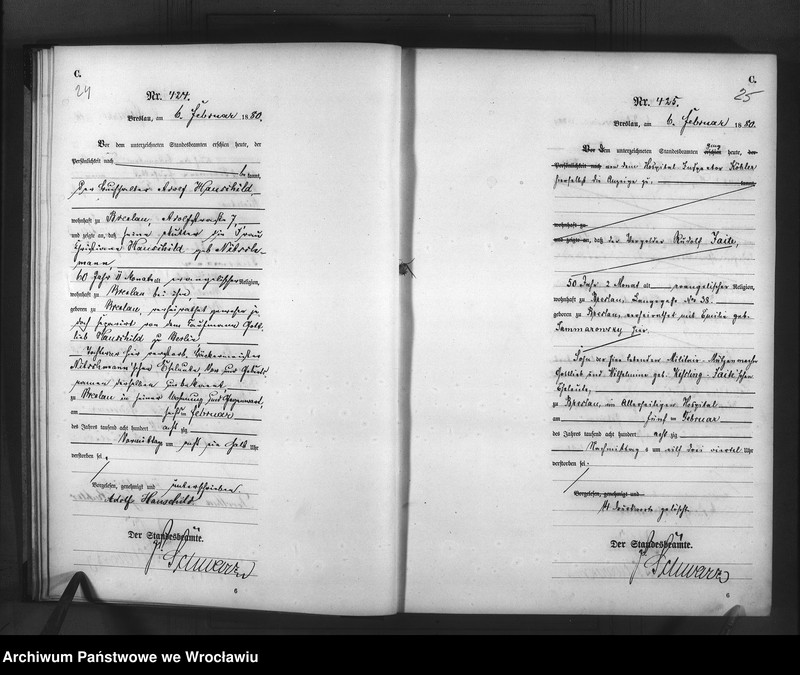 C.
24
Nr. 424.
Breslau, am 6. Februar 1880.
Vor dem unterzeichneten Standesbeamten erschien heute, der
Persönlichkeit nach
be kannt,
der Buchhalter Adolf Hanschild,
wohnhaft zu Breslau, Adolfstraße 7,
und zeigte an, daß seine Mutter die Frau
Christiane Hanschild geb. Nitschke-
mann,
60 Jahr 11 Monate evangelischer Religion,
wohnhaft zu Breslau bei ihm,
geboren zu Breslau, verheirathet gewesen je-
doch separirt von dem Kaufmann Gott-
lieb Hanschild zu Berlin
Tochter
Eheleute
zu Breslau in seiner Wohnung und Gegenwart,
am sechsten Februar
des Jahres tausend acht hundert acht zig
Vormittag um Uhr
verstorben sei.
Vorgelesen, genehmigt und unterschrieben.
Adolf Hanschild
Der Standesbeamte.
Schwarz
6
C.
25
Nr. 425.
Breslau, am 6. Februar 1880.
Vor dem unterzeichneten Standesbeamten erschien ging heute, der
Persönlichkeit nach von dem Hospital Inspector Köhler
hierselbst die Anzeige zu, kannt,
wohnhaft zu
und zeigte an, daß der Vergolder Rudolf Faite,
50 Jahr 2 Monat alt evangelischer Religion,
wohnhaft zu Breslau, Langegasse No 38.
geboren zu Breslau, verheirathet mit Emilie geb.
hier.
Sohn der hier lebenden Militair-Mützenmacher
Gottlieb und Wilhelmine geb. Faite'schen
Eheleute,
zu Breslau, im Allerheiligen Hospital
am fünf ten Februar
des Jahres tausend acht hundert acht zig
Nachmittag s um elf drei viertel Uhr
verstorben sei.
Vorgelesen, genehmigt und
Druckworte gelöscht.
Der Standesbeamte.
Schwarz
6
Archiwum Państwowe we Wrocławiu